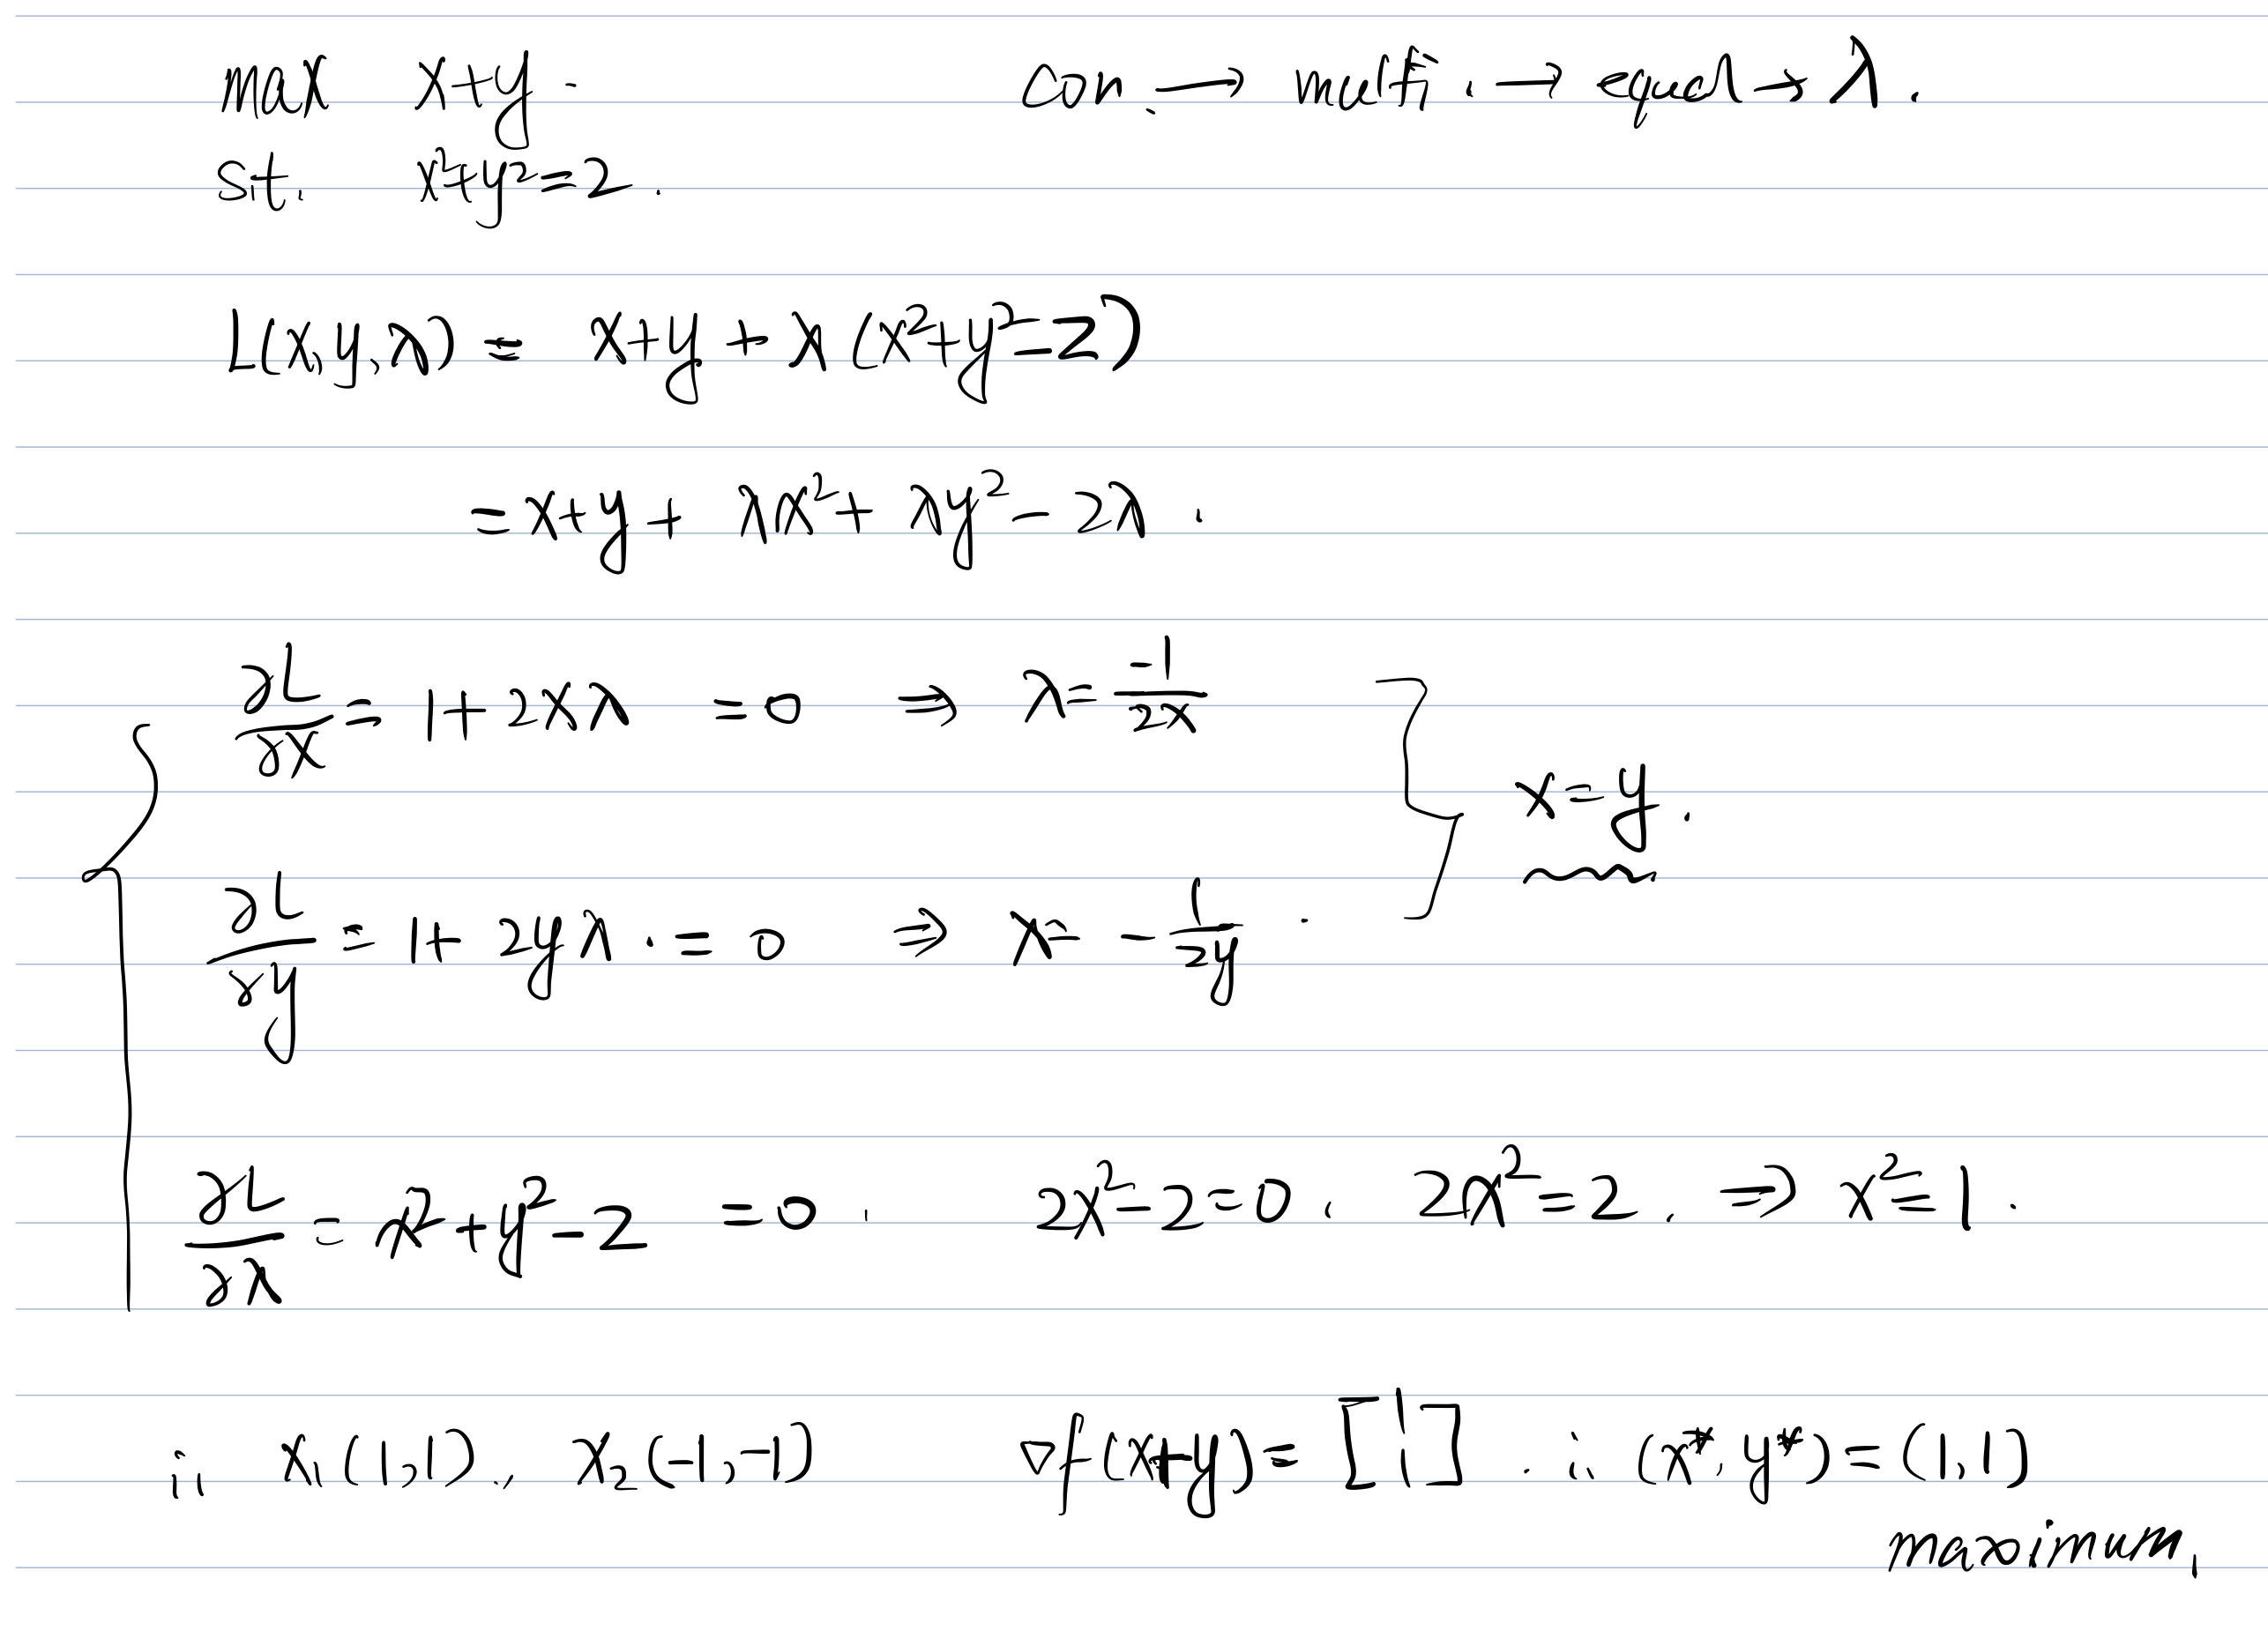 max x+y. con. → multi. → equal → λ.
s.t. x²+y²=2.
L(x,y,λ) = x+y + λ(x²+y²-2)
= x+y + λx² + λy² - 2λ.
∂L/∂x = 1+2xλ = 0 ⇒ λ = -1/2x
x=y.
∂L/∂y = 1+2yλ. = 0 ⇒ λ = - 1/2y.
∂L/∂λ = x²+y²-2 = 0. 2x²-2=0. 2x²=2. ⇒ x²=1.
∴ x₁(1,1)., x₂(-1,-1) ∇f(x+y) = [1 1]. ∴ (x*, y*) = (1,1)
maximum.